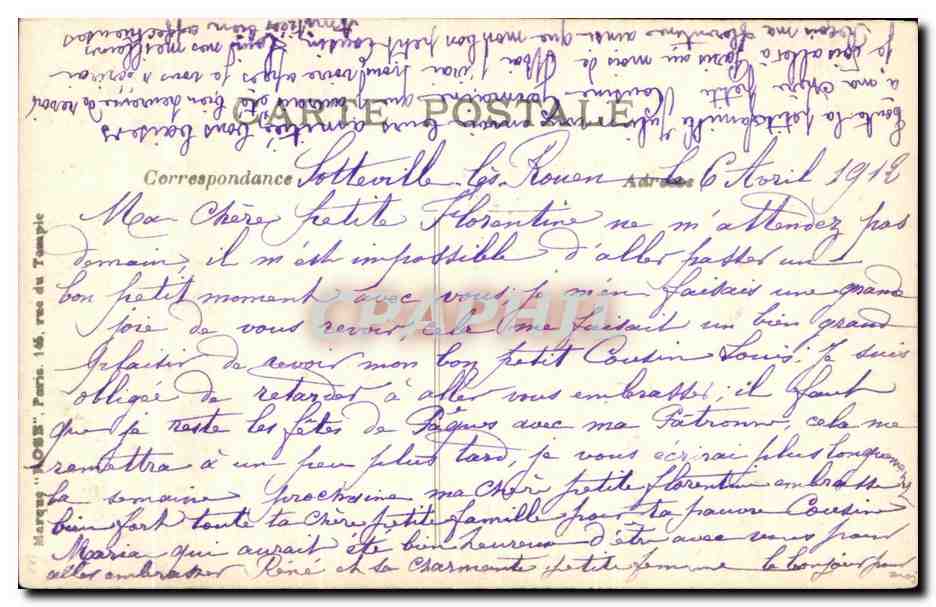 CARTE POSTALE
Correspondance
Adresse
Sotteville-lès-Rouen le 6 Avril 1912
Ma chère petite Florentine ne m'attendez pas
demain, il m'est impossible d'aller passer un
bon petit moment avec vous, je m'en faisais une grande
joie de vous revoir, cela me faisait un bien grand
plaisir de revoir mon bon petit Cousin Louis. Je suis
obligée de retarder à aller vous embrasser; il faut
que je reste les fêtes de Pâques avec ma Patronne, cela me
remettra à un peu plus tard, je vous écrirai plus longuement
la semaine prochaine ma chère petite florentine embrasse
bien fort toute ta chère petite famille pour ta pauvre Cousine
Maria qui aurait été bien heureuse d'être avec vous pour
aller embrasser Réné et sa charmante petite femme le bonjour pour
moi
toute la petite famille
à ma chère petite Cousine
je vous écrirai
Reçois ma Florentine ainsi que mon bon petit Cousin Louis nos meilleures
Amitiés bien affectueuses
Marque "ROSE", Paris, 146, rue du Temple
CPAPHIL